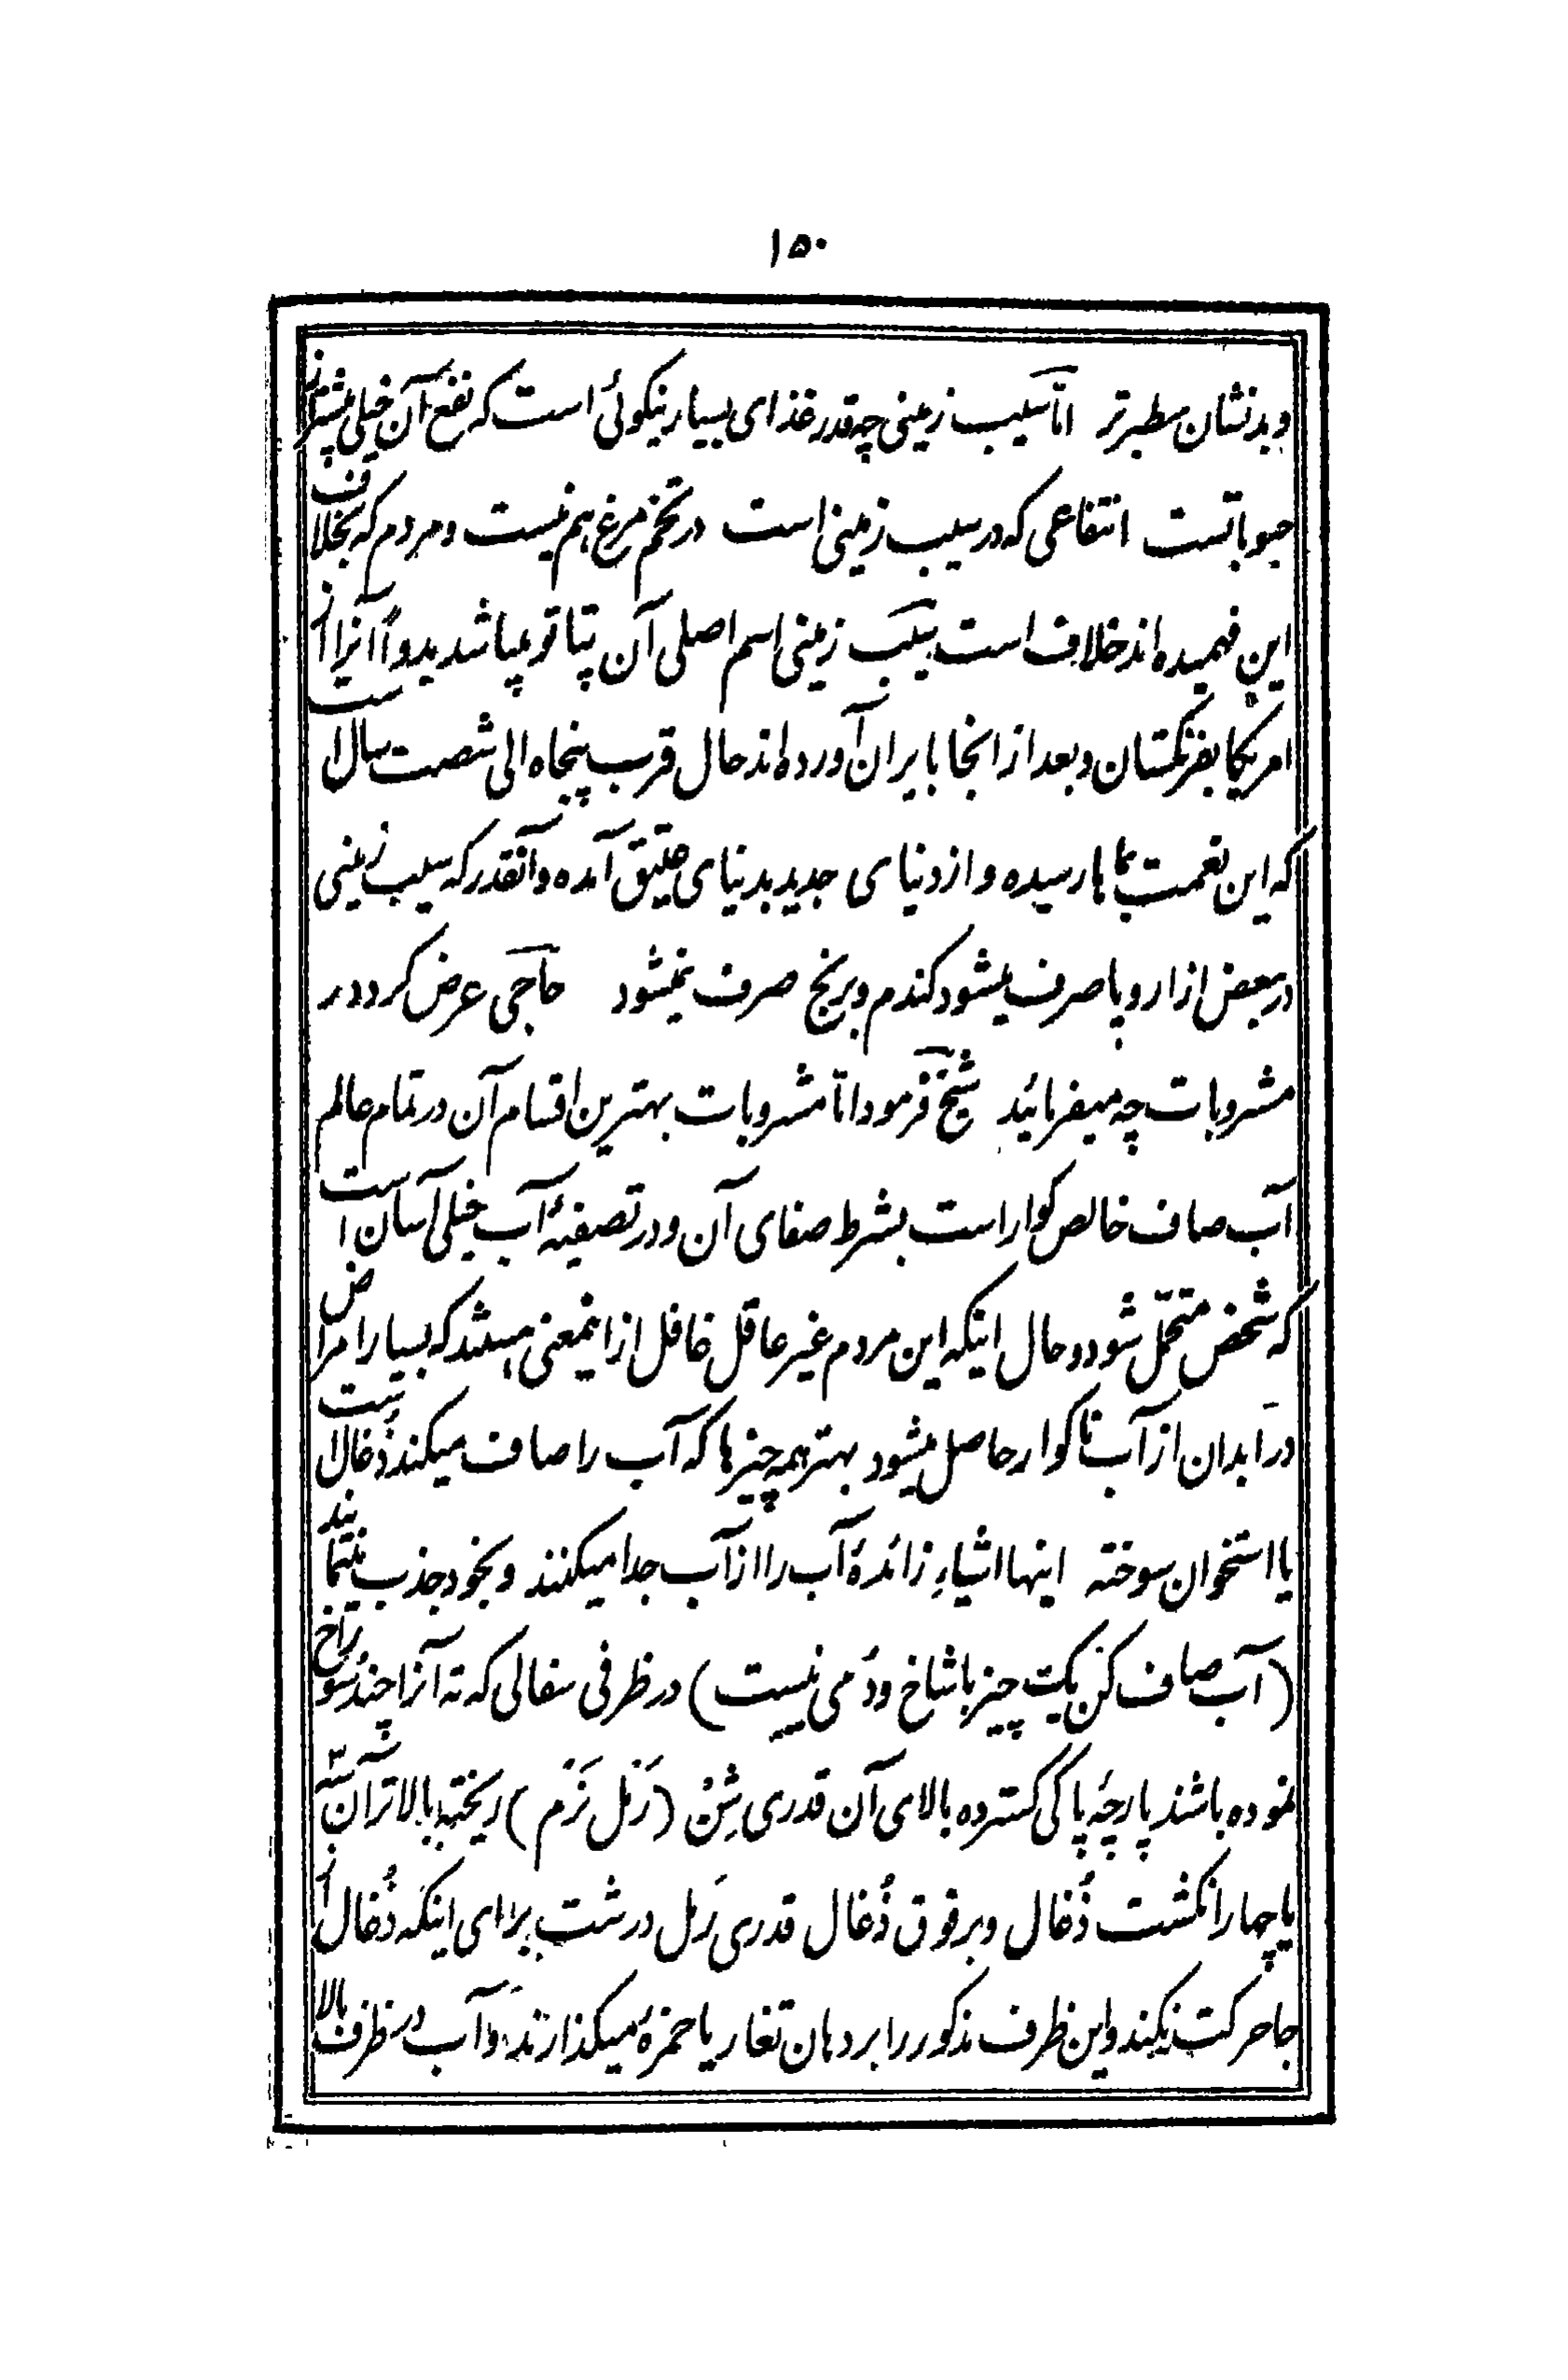 ۱۵۰
وبدنشان سطبرتر امّا سیب زمینی چه قدر غذای بسیار نیکوئی است که نفع آن خیلی بیشتر از
حبوباتست انتفاعی که در سیب زمینی است در تخم مرغ هم نیست و مردم که بخلاف
این فهمیده اند خلاف است سیب زمینی اسم اصلی آن پتاتو میباشد بدواً آنرا از
امریکا بفرنگستان و بعد از انجا بایران آورده اند حال قرب پنجاه الی شصت سال است
که این نعمت بماها رسیده و از دنیای جدید بدنیای عتیق آمده و آنقدر که سیب زمینی
در بعض از اروپا صرف میشود کندم و برنج صرف نمیشود حاجی عرض کرد در
مشروبات چه میفرمائید شیخ فرمود امّا مشروبات بهترین اقسام آن در تمام عالم
آب صاف خالص کوارا است بشرط صفای آن و در تصفیهٔ آب خیلی آسان است
که شخص متحمّل شود و حال اینکه این مردم غیر عاقل غافل از اینمعنی هستند که بسیار امراض
در ابدان از آب ناکوار حاصل میشود بهتر همه چیزها که آب را صاف میکند ذُغال است
یا استخوان سوخته اینها اشیاءِ زائدهٔ آب را از آب جدا میکنند و بخود جذب مینمایند
(آب صاف کن یک چیز با شاخ ودُمی نیست) در ظرفی سفالی که ته آنرا چند سُوراخ
نموده باشند پارچهٔ پاکی کسترده بالای آن قدری شِنْ (رَمل نَرْم) ریخته بالاتر آن سه
یا چهار انکشت ذُغال و بر فوق ذُغال قدری رَمل درشت برای اینکه ذُغال از
جا حرکت نکند و این ظرف مذکور را بر دهان تغار یا خمرهٔ میکذارند و آب در ظرف بالا